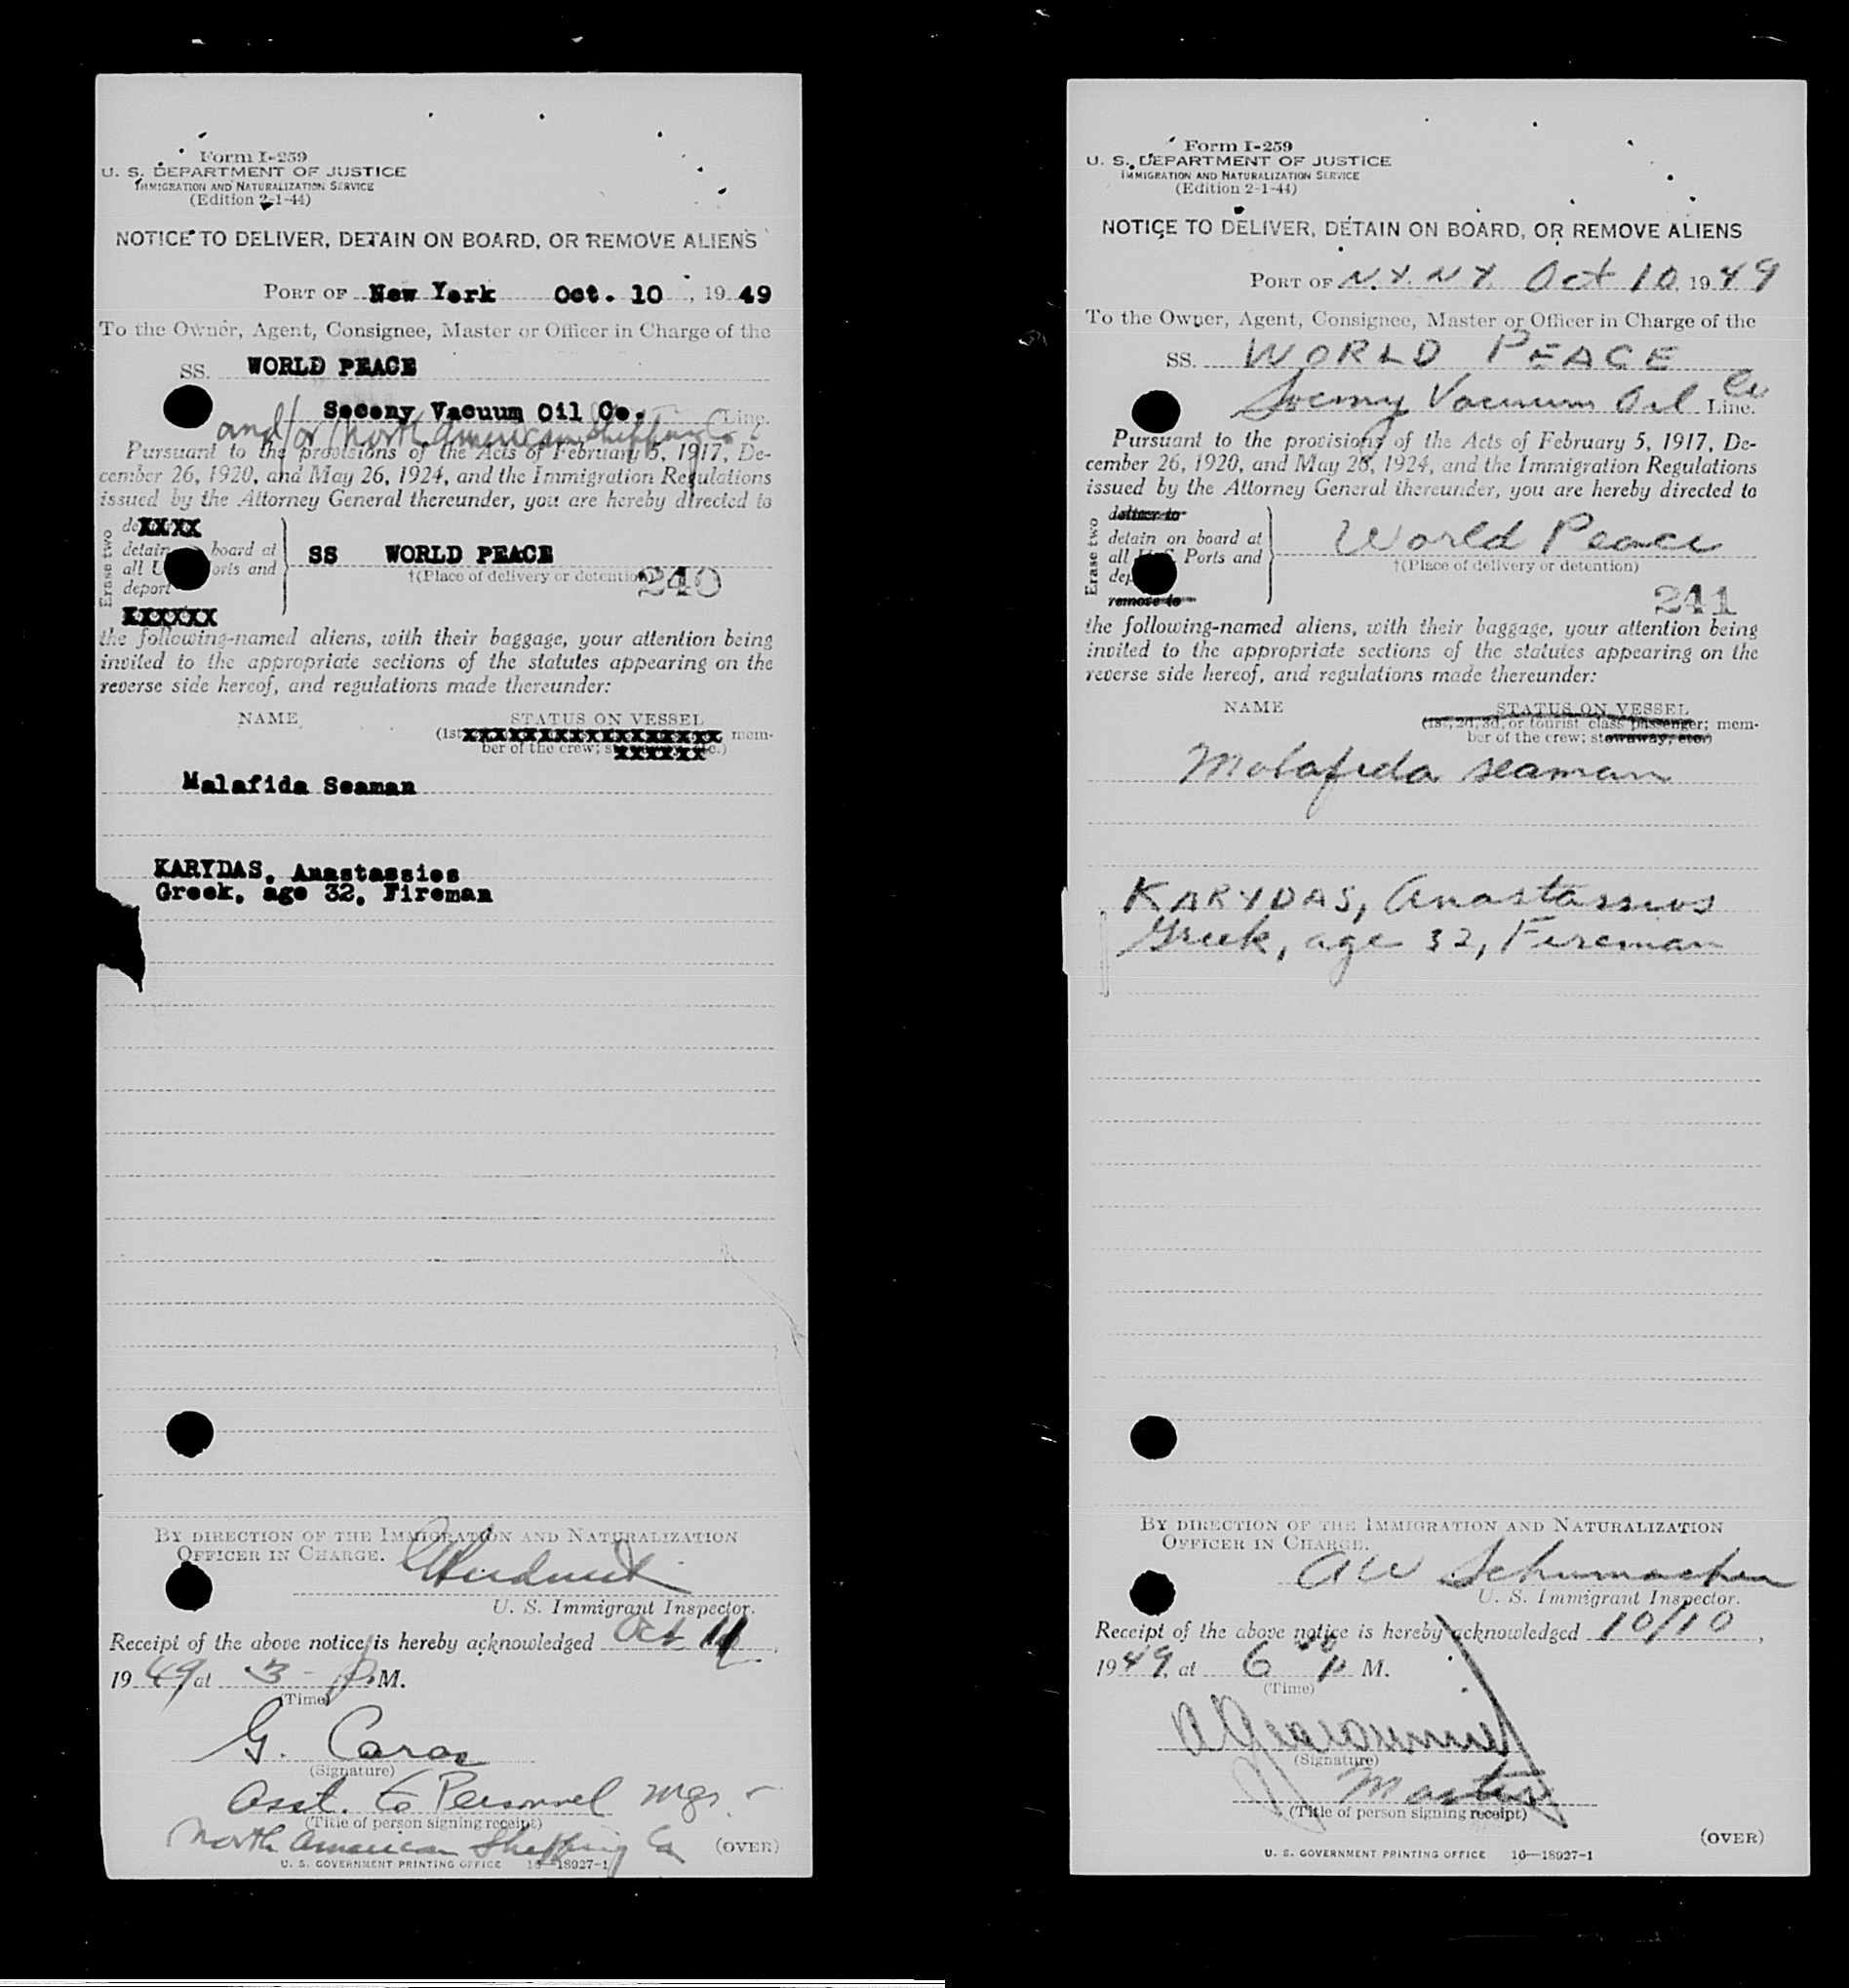 Form I-259
U. S. DEPARTMENT OF JUSTICE
IMMIGRATION AND NATURALIZATION SERVICE
(Edition 2-1-44)
NOTICE TO DELIVER, DETAIN ON BOARD, OR REMOVE ALIENS
PORT OF New York Oct. 10, 19 49
To the Owner, Agent, Consignee, Master or Officer in Charge of the
SS. WORLD PEACE
Socony Vacuum Oil Co. Line.
and/or North American Shipping Co
Pursuant to the provisions of the Acts of February 5, 1917, De-
cember 26, 1920, and May 26, 1924, and the Immigration Regulations
issued by the Attorney General thereunder, you are hereby directed to
Erase two
deXXXX
detain board at
all U Ports and
deport
XXXXXX
SS WORLD PEACE
†(Place of delivery or detention)
240
the following-named aliens, with their baggage, your attention being
invited to the appropriate sections of the statutes appearing on the
reverse side hereof, and regulations made thereunder:
NAME STATUS ON VESSEL
(1stXXXXXXXXXXXXXXXXX mem-
ber of the crew; sXXXXXXc.)
Malafida Seaman
KARYDAS, Anastassios
Greek, age 32, Fireman
BY DIRECTION OF THE IMMIGRATION AND NATURALIZATION
OFFICER IN CHARGE.
U. S. Immigrant Inspector.
Receipt of the above notice is hereby acknowledged Oct
19 49 at 3 - P.M.
(Time)
G. Caros
(Signature)
Asst. to Personnel Mgr. -
(Title of person signing receipt)
North American Shipping Co
(OVER)
U. S. GOVERNMENT PRINTING OFFICE 16—18027-1
Form I-259
U. S. DEPARTMENT OF JUSTICE
IMMIGRATION AND NATURALIZATION SERVICE
(Edition 2-1-44)
NOTICE TO DELIVER, DETAIN ON BOARD, OR REMOVE ALIENS
PORT OF N.Y. N.Y. Oct 10, 19 49
To the Owner, Agent, Consignee, Master or Officer in Charge of the
SS. WORLD PEACE
Socony Vacuum Oil Co Line.
Pursuant to the provisions of the Acts of February 5, 1917, De-
cember 26, 1920, and May 26, 1924, and the Immigration Regulations
issued by the Attorney General thereunder, you are hereby directed to
Erase two
deliver to
detain on board at
all U.S. Ports and
dep
remove to
World Peace
†(Place of delivery or detention)
241
the following-named aliens, with their baggage, your attention being
invited to the appropriate sections of the statutes appearing on the
reverse side hereof, and regulations made thereunder:
NAME STATUS ON VESSEL
(1st, 2d, 3d, or tourist class passenger; mem-
ber of the crew; stowaway, etc.)
Molafida seaman
KARYDAS, Anastassios
Greek, age 32, Fireman
BY DIRECTION OF THE IMMIGRATION AND NATURALIZATION
OFFICER IN CHARGE.
AW Schumacher
U. S. Immigrant Inspector.
Receipt of the above notice is hereby acknowledged 10/10,
19 49, at 6 00 P M.
(Time)
(Signature)
Master
(Title of person signing receipt)
(OVER)
U. S. GOVERNMENT PRINTING OFFICE 16—18927-1